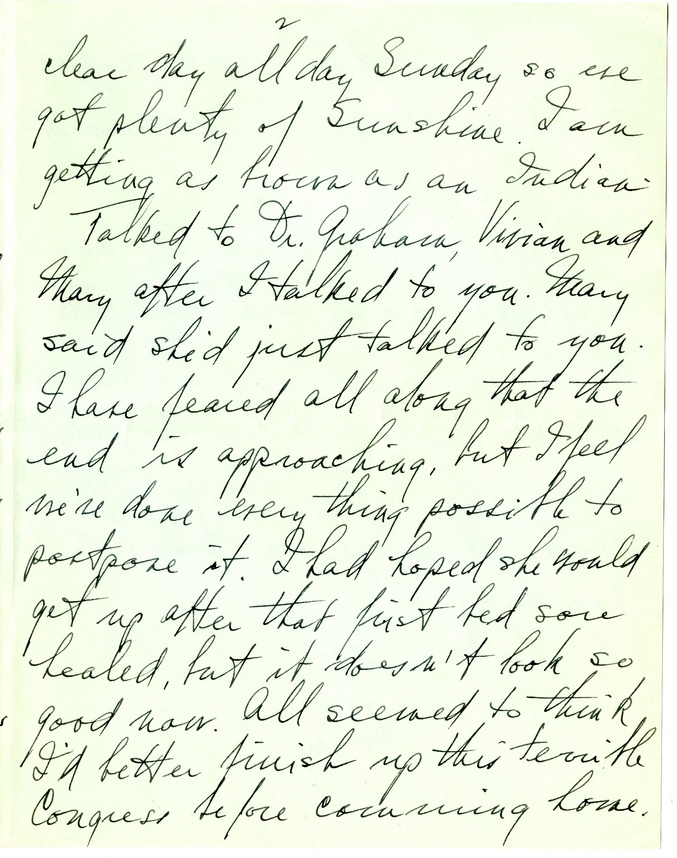 2
clear day all day Sunday so we
got plenty of Sunshine. I am
getting as brown as an Indian.
Talked to Dr. Graham, Vivian and
Mary after I talked to you. Mary
said she'd just talked to you.
I have feared all along that the
end is approaching, but I feel
we've done every thing possible to
postpone it. I had hoped she would
get up after that first bed sore
healed, but it doesn't look so
good now. All seemed to think
I'd better finish up this terrible
Congress before comming home.